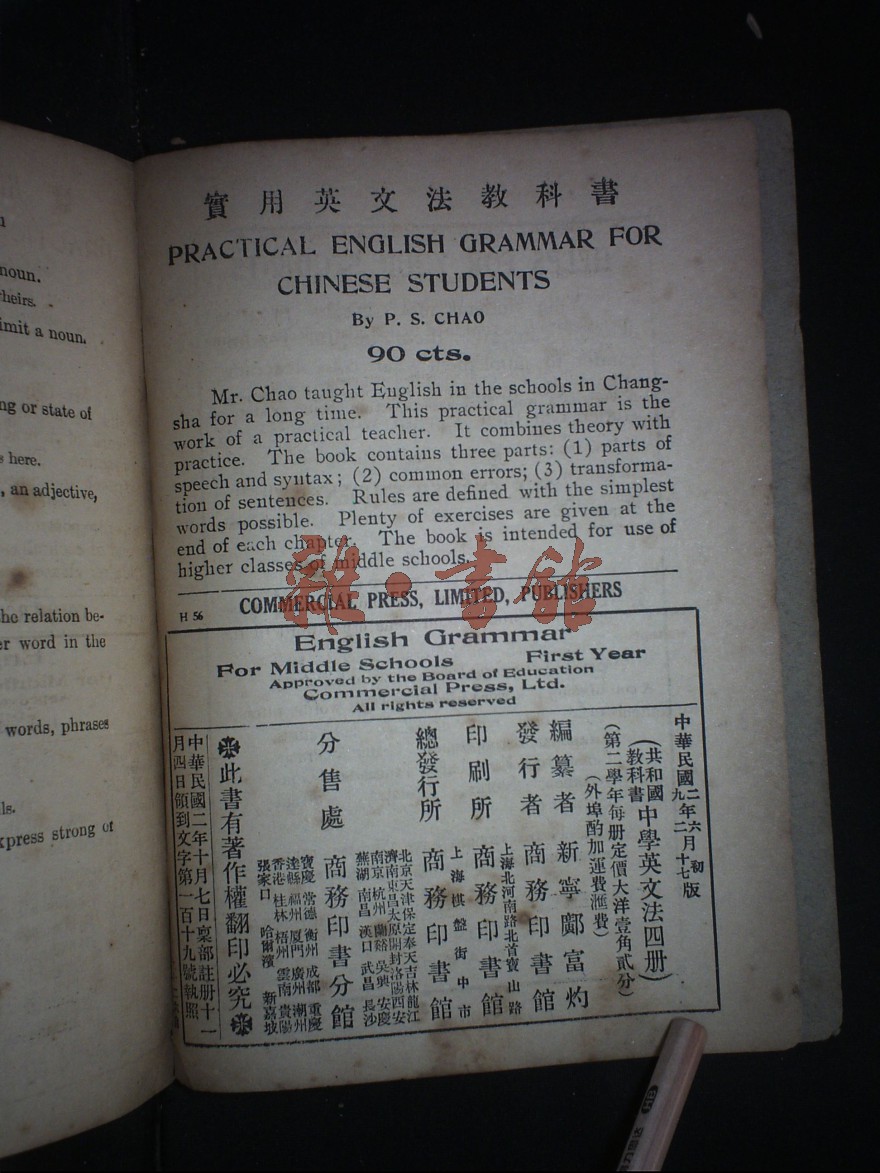 noun.
theirs.
imit a noun.
ng or state of
s here.
, an adjective,
the relation be-
er word in the
words, phrases
ls.
xpress strong of
實用英文法教科書
PRACTICAL ENGLISH GRAMMAR FOR
CHINESE STUDENTS
By P. S. CHAO
90 cts.
Mr. Chao taught English in the schools in Chang-
sha for a long time. This practical grammar is the
work of a practical teacher. It combines theory with
practice. The book contains three parts: (1) parts of
speech and syntax; (2) common errors; (3) transforma-
tion of sentences. Rules are defined with the simplest
words possible. Plenty of exercises are given at the
end of each chapter. The book is intended for use of
higher classes of middle schools.
雜·書館
H 56
COMMERCIAL PRESS, LIMITED, PUBLISHERS
English Grammar
For Middle Schools First Year
Approved by the Board of Education
Commercial Press, Ltd.
All rights reserved
中華民國二年六月初版
九二十七
(共和國教科書中學英文法四册)
(第二學年每册定價大洋壹角貳分)
(外埠酌加運費滙費)
編纂者 新寧鄺富灼
發行者 商務印書館
上海北河南路北首寶山路
印刷所 商務印書館
上海棋盤街中市
總發行所 商務印書館
北京天津保定奉天吉林龍江
濟南東昌太原開封洛陽西安
南京杭州蘭谿吳興安慶
蕪湖南昌漢口武昌長沙
分售處 商務印書分館
寶慶常德衡州成都重慶
達縣福州厦門廣州潮州
香港桂林梧州雲南貴陽
張家口 哈爾濱 新嘉坡
此書有著作權翻印必究
中華民國二年十月七日稟部註册十一
月四日領到文字第一百十九號執照
HB